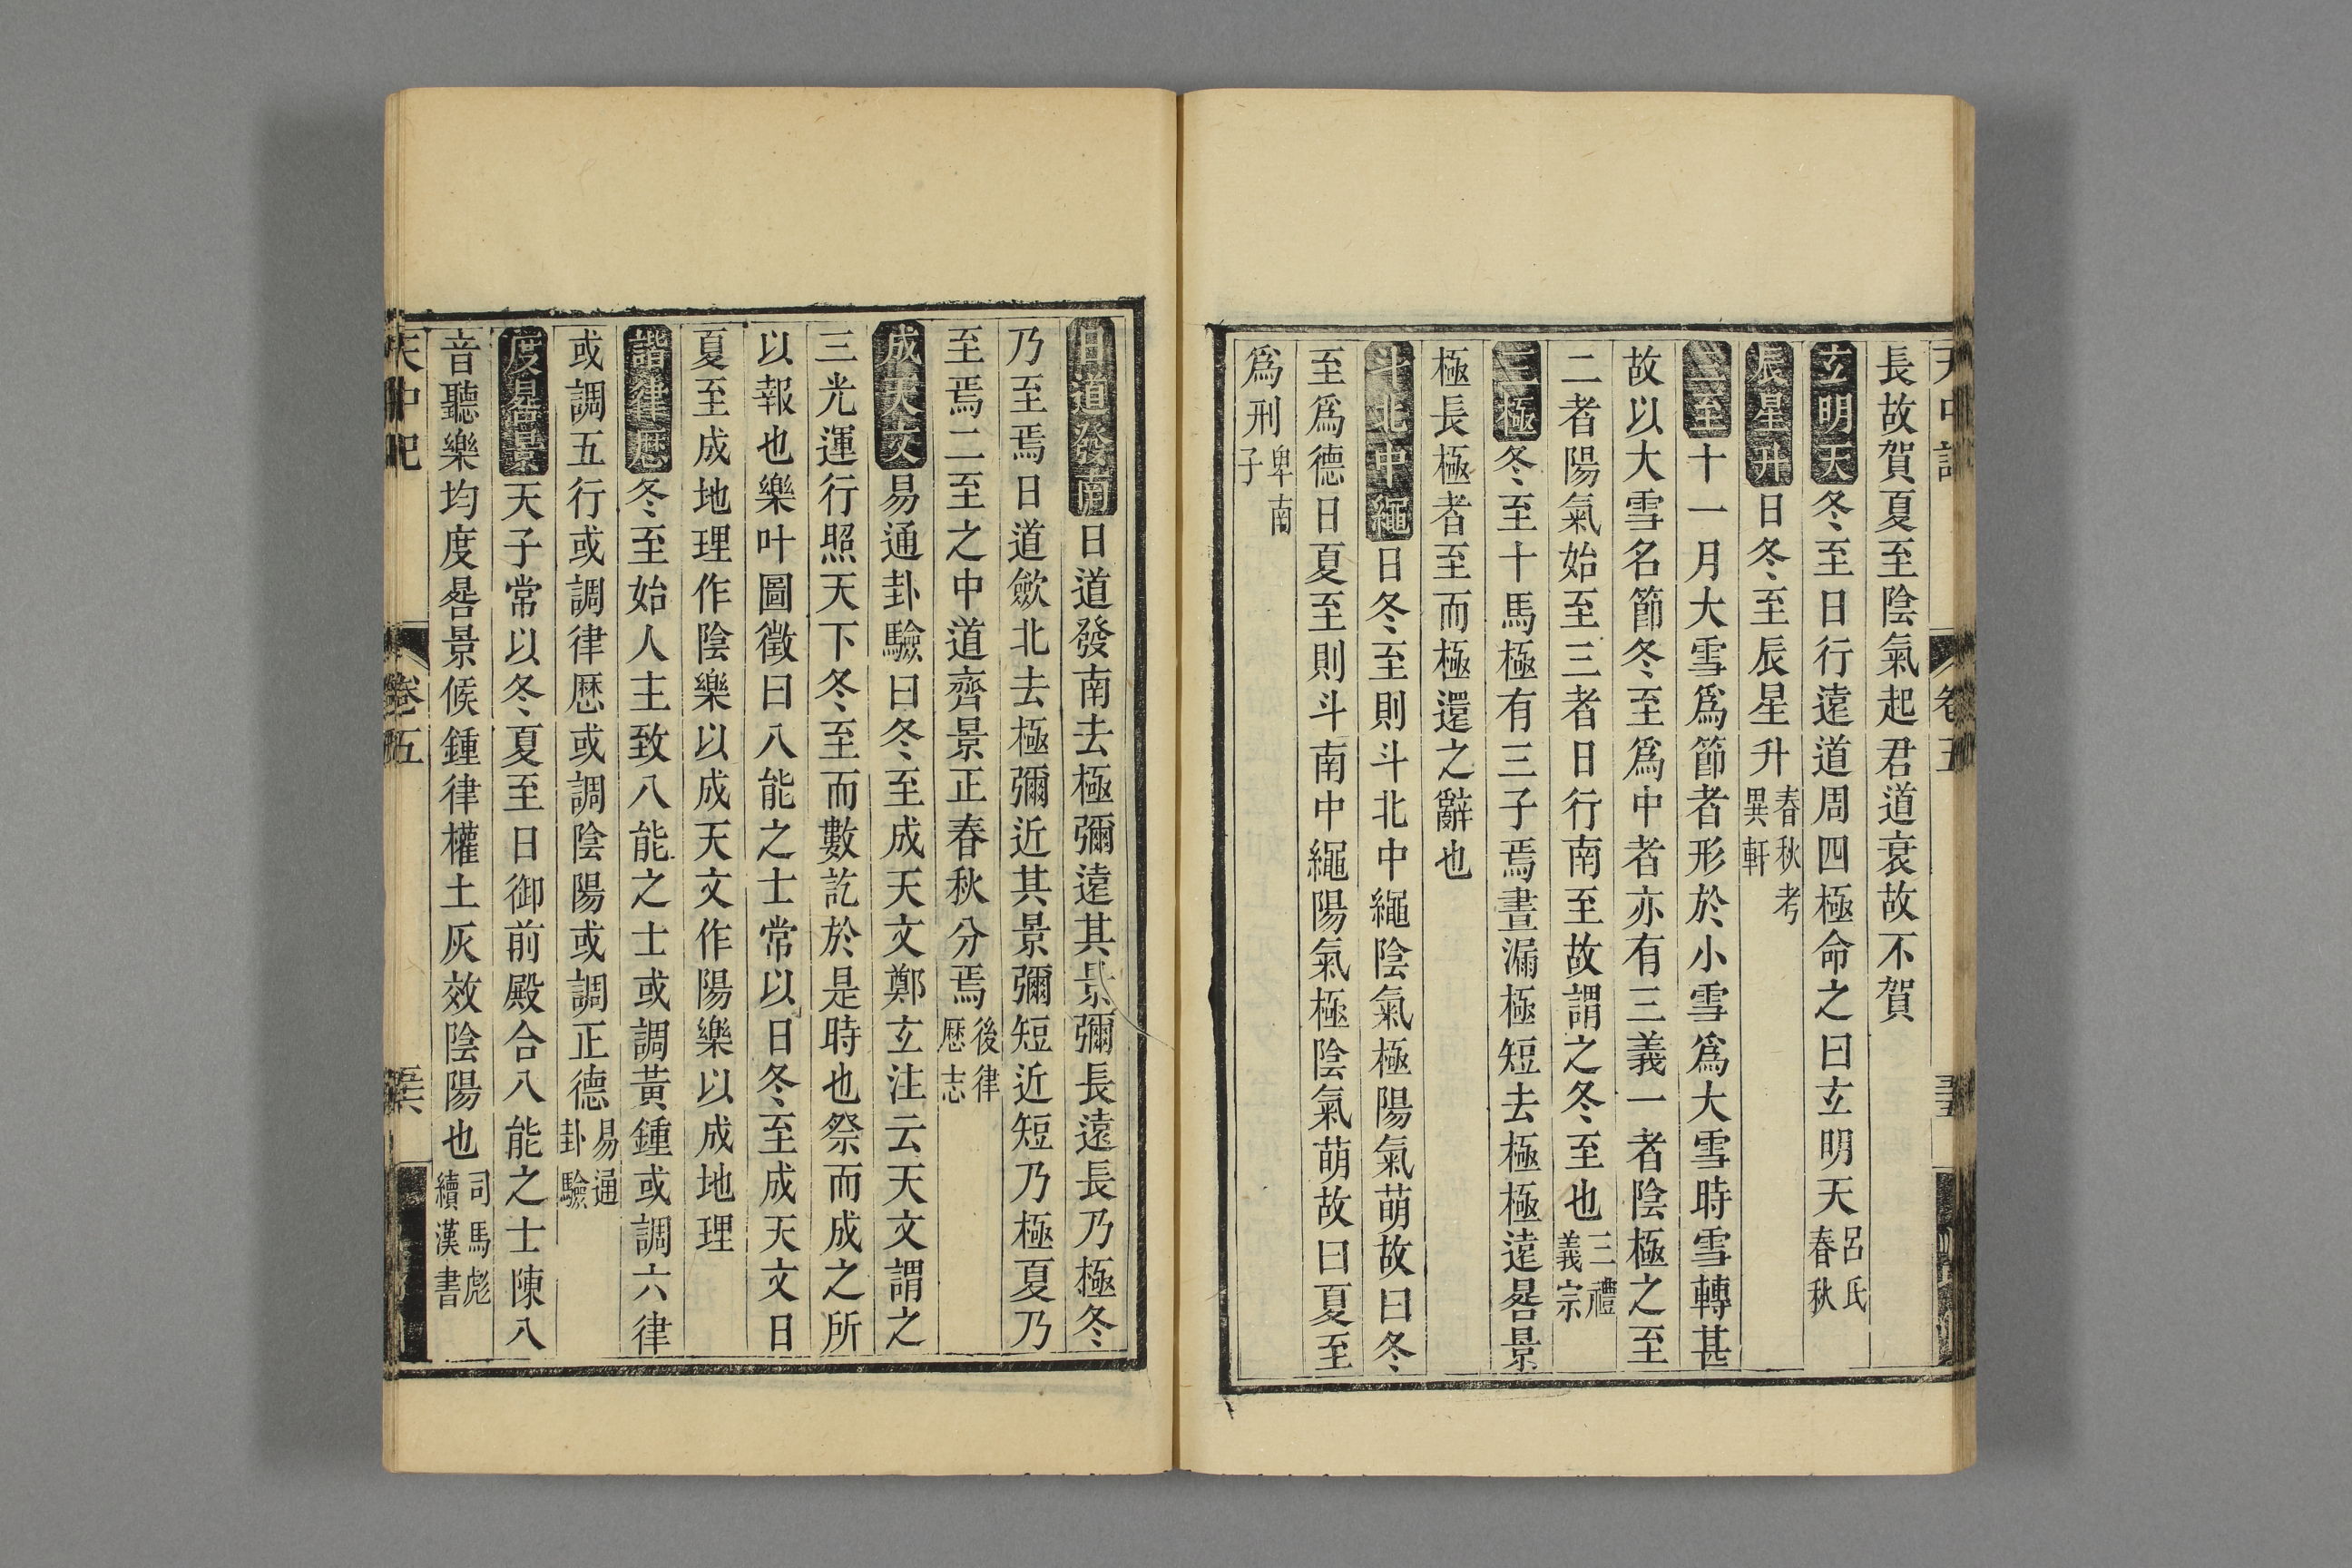 長故賀夏至陰氣起君道衰故不賀
玄明天冬至日行遠道周四極命之曰玄明天呂氏春秋
辰星升日冬至辰星升春秋考異軒
三至十一月大雪爲節者形於小雪爲大雪時雪轉甚
故以大雪名節冬至爲中者亦有三義一者陰極之至
二者陽氣始至三者日行南至故謂之冬至也三禮義宗
三極冬至十馬極有三子焉晝漏極短去極極遠晷景
極長極者至而極還之辭也
斗北中繩日冬至則斗北中繩陰氣極陽氣萌故曰冬
至爲德日夏至則斗南中繩陽氣極陰氣萌故曰夏至
爲刑卑南子
日道發南日道發南去極彌遠其景彌長遠長乃極冬
乃至焉日道斂北去極彌近其景彌短近短乃極夏乃
至焉二至之中道齊景正春秋分焉後律厯志
成天文易通卦驗曰冬至成天文鄭玄注云天文謂之
三光運行照天下冬至而數訖於是時也祭而成之所
以報也樂叶圖徵曰八能之士常以日冬至成天文日
夏至成地理作陰樂以成天文作陽樂以成地理
諧律厯冬至始人主致八能之士或調黃鍾或調六律
或調五行或調律厯或調陰陽或調正德易通卦驗
度晷景天子常以冬夏至日御前殿合八能之士陳八
音聽樂均度晷景候鍾律權土灰效陰陽也司馬彪續漢書
天中記
卷五